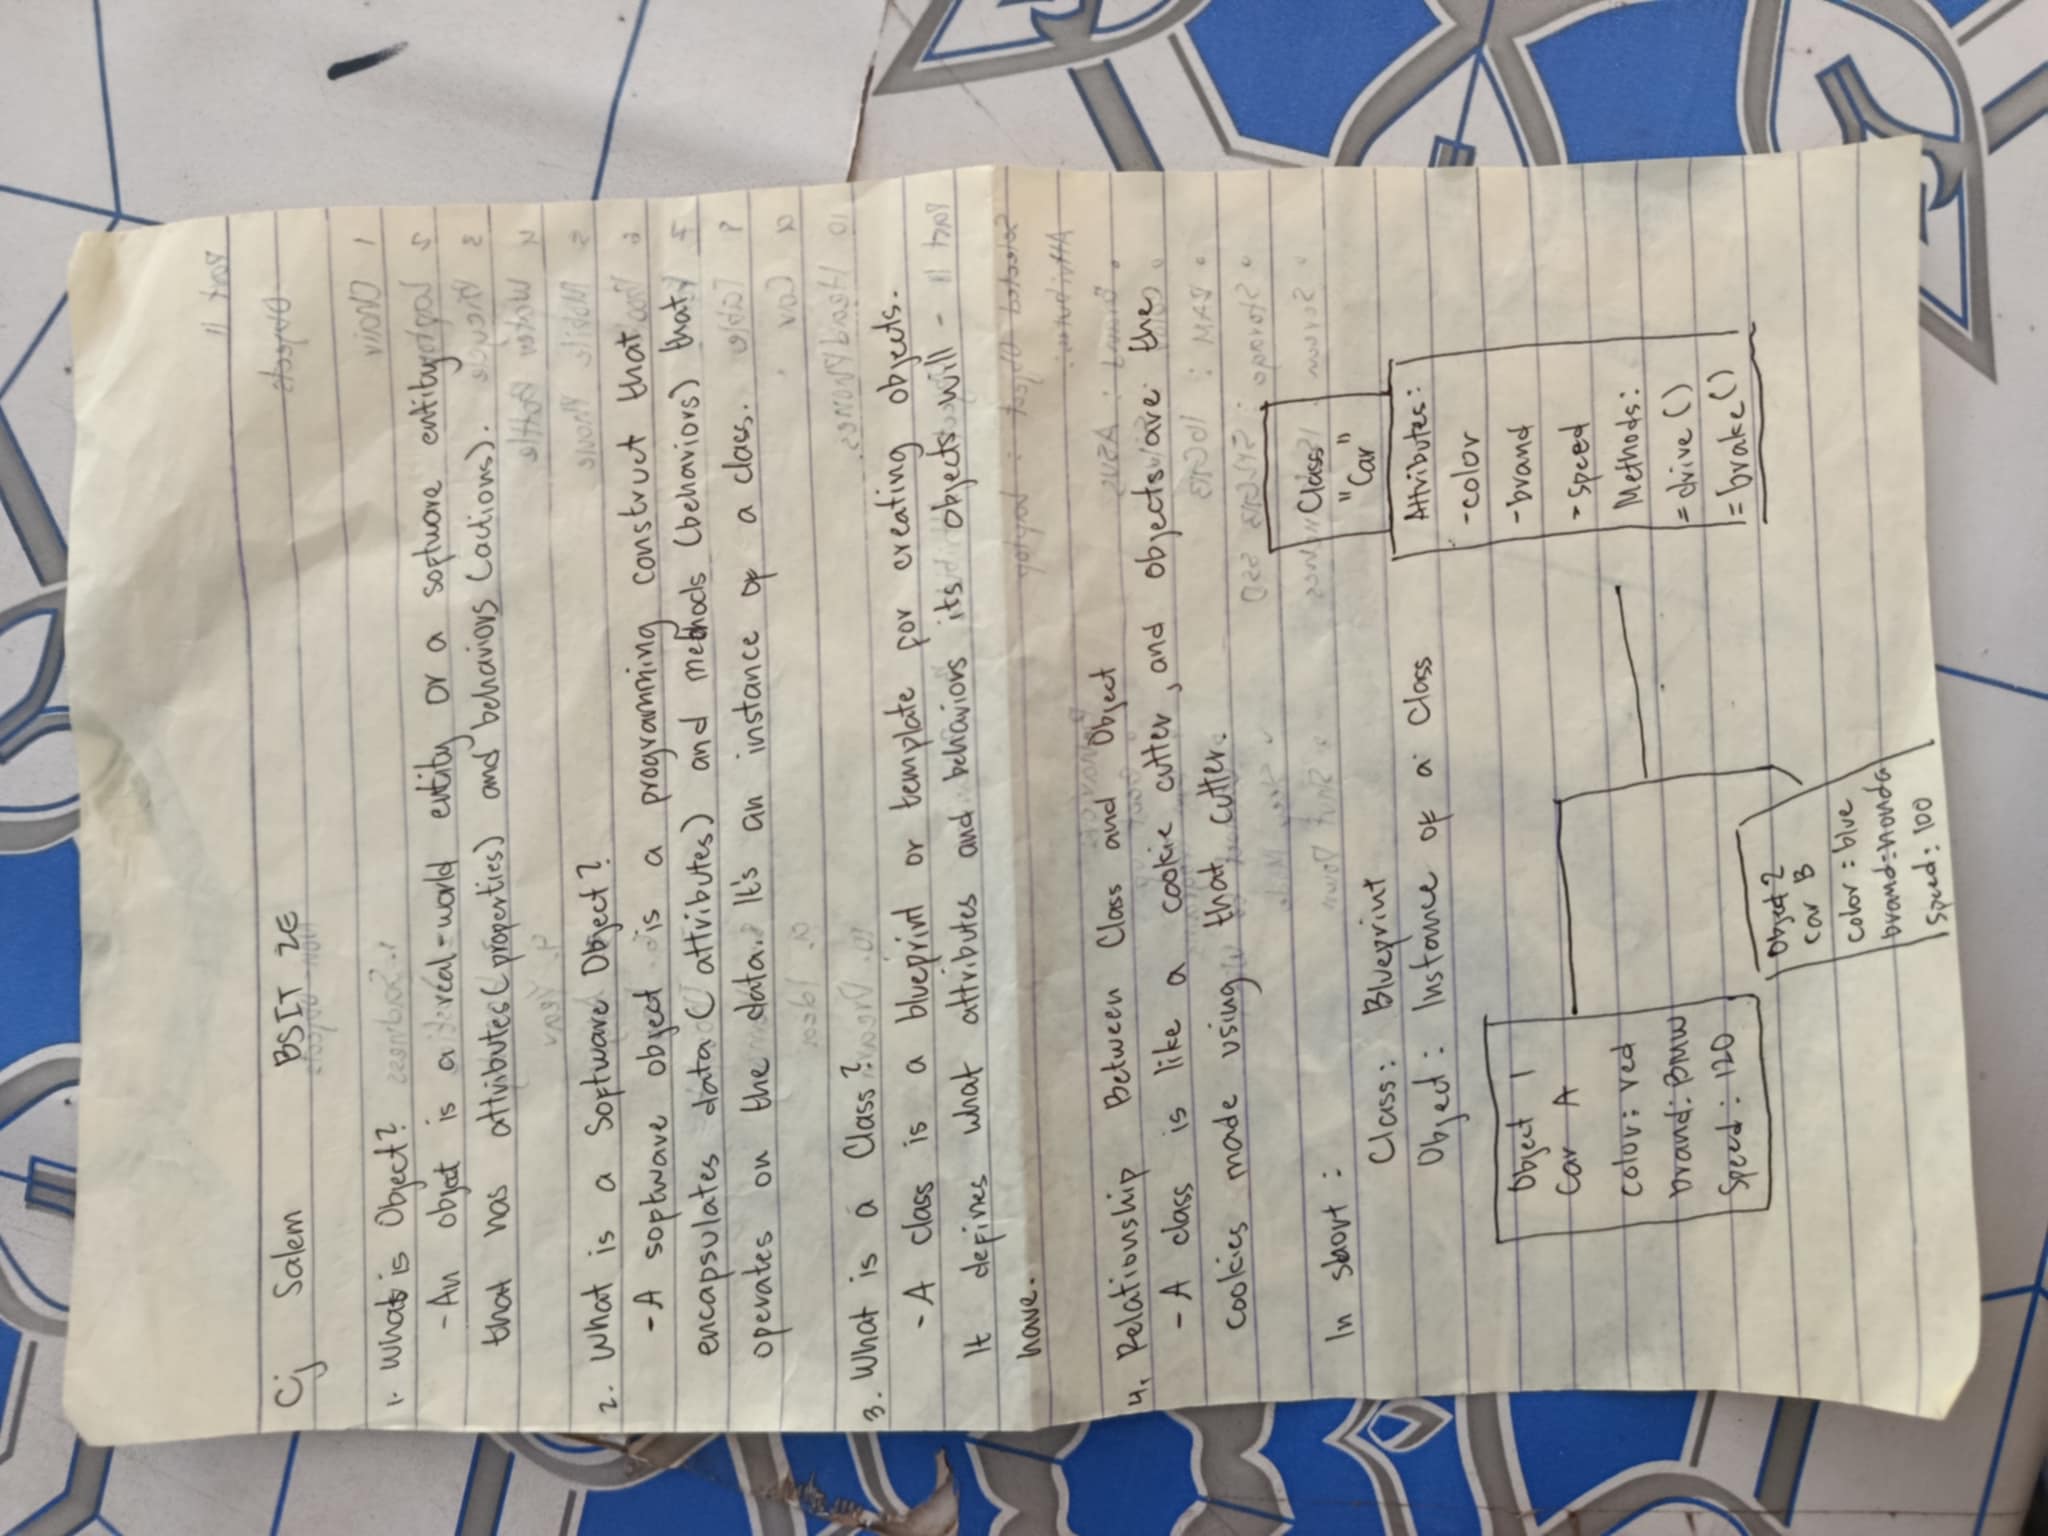 Cj Salem BSIT 2E
1. What is Object?
- An object is a real-world entity or a software entity
that has attributes (properties) and behaviors (actions).
2. What is a Software Object?
- A software object is a programming construct that
encapsulates data (attributes) and methods (behaviors) that
operates on the data. It's an instance of a class.
3. What is a Class?
- A class is a blueprint or template for creating objects.
It defines what attributes and behaviors its objects will -
have.
4. Relationship Between Class and Object
- A class is like a cookie cutter, and objects are the
cookies made using that cutter.
In short:
Class: Blueprint
Object: Instance of a Class
Class
"Car"
Attributes:
- color
- brand
- Speed
Methods:
= drive()
= brake()
Object 1
Car A
color: red
brand: BMW
Speed: 120
Object 2
Car B
color: blue
brand: Honda
Speed: 100